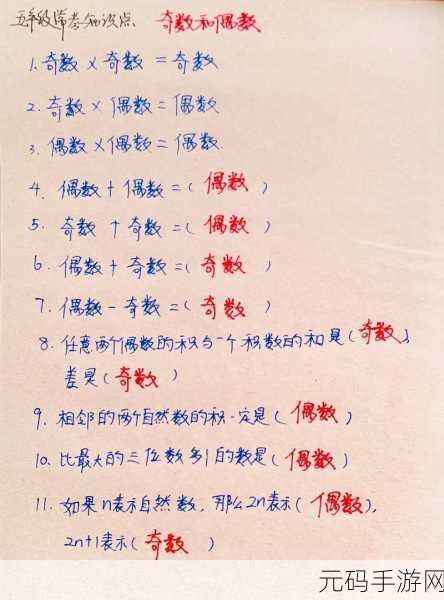 五年级常考知识点 奇数和偶数
1.奇数×奇数=奇数
2.奇数×偶数=偶数
3.偶数×偶数=偶数.
4.偶数+偶数=(偶数)
5.奇数+奇数=(偶数)
6.偶数+奇数=(奇数)
7.偶数-奇数=(奇数)
8.任意两个偶数的积与一个积数的和是(奇数),
差是(奇数)
9.相邻的两个自然数的积一定是(偶数)
10.比最大的三位数多1的数是(偶数)
11.如果n表示自然数,那么2n表示(偶数),
2n+1表示(奇数)
元码手游网